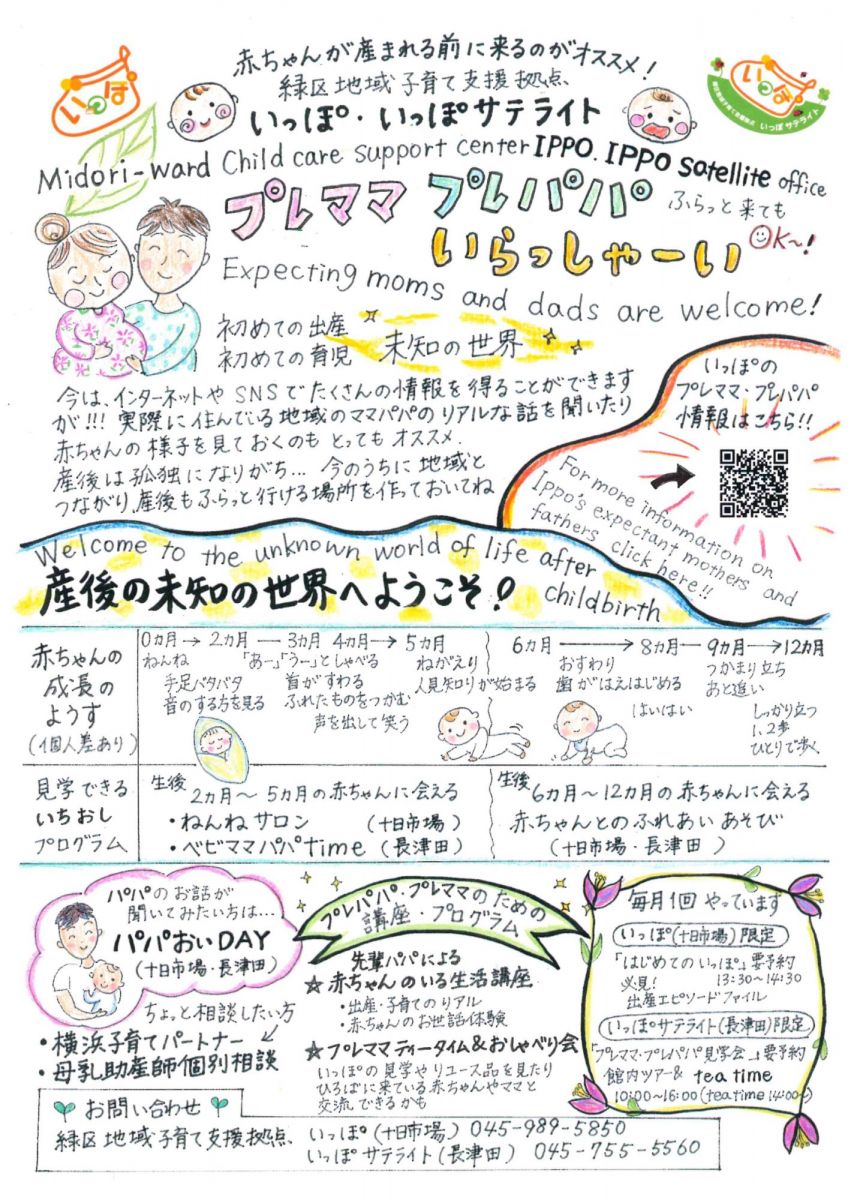 いっぽ
赤ちゃんが産まれる前に来るのがオススメ!
緑区地域子育て支援拠点
いっぽ・いっぽサテライト
いっぽ
いっぽサテライト
Midori-ward Child care support center IPPO. IPPO satellite office
プレママ プレパパ
ふらっと来ても
OK~!
いらっしゃーい
Expecting moms and dads are welcome!
初めての出産
初めての育児
未知の世界
今は、インターネットや SNSでたくさんの情報を得ることができます
が!!! 実際に住んでいる地域のママパパのリアルな話を聞いたり
赤ちゃんの様子を見ておくのも とってもオススメ.
産後は孤独になりがち… 今のうちに地域と
つながり、産後もふらっと行ける場所を作っておいてね
いっぽの
プレママ・プレパパ
情報はこちら!!
For more information on
Ippo's expectant mothers and
fathers click here!!
Welcome to the unknown world of life after
childbirth
産後の未知の世界へようこそ!
赤ちゃんの
成長の
ようす
(個人差あり)
0カ月→ 2カ月 ― 3カ月 4カ月→ 5カ月
ねんね
手足バタバタ
音のする方を見る
「あー」「うー」としゃべる
首がすわる
ふれたものをつかむ
声を出して笑う
ねがえり
人見知りが始まる
6カ月 → 8カ月― 9カ月 →12カ月
おすわり
歯がはえはじめる
はいはい
つかまり立ち
あと追い
しっかり立つ
1、2歩
ひとりで歩く
見学できる
いちおし
プログラム
生後 2カ月~5カ月の赤ちゃんに会える
・ねんねサロン (十日市場)
・ベビママパパtime (長津田)
生後 6カ月~12カ月の赤ちゃんに会える
赤ちゃんとのふれあいあそび
(十日市場・長津田)
パパのお話が
聞いてみたい方は…
パパおいDAY
(十日市場・長津田)
ちょっと相談したい方
・横浜子育てパートナー
・母乳助産師個別相談
プレパパ・プレママのための
講座・プログラム
先輩パパによる
★赤ちゃんのいる生活講座
・出産・子育てのリアル
・赤ちゃんのお世話体験
★プレママティータイム&おしゃべり会
いっぽの見学やリユース品を見たり
ひろばに来ている赤ちゃんやママと
交流できるかも
毎月1回 やっています
いっぽ(十日市場)限定
「はじめてのいっぽ」要予約
必見! 13:30~14:30
出産エピソードファイル
いっぽサテライト(長津田)限定
「プレママ・プレパパ見学会」要予約
館内ツアー& tea time
10:00~16:00 (tea time 14:00~)
お問い合わせ
緑区地域子育て支援拠点、
いっぽ(十日市場) 045-989-5850
いっぽサテライト(長津田) 045-755-5560